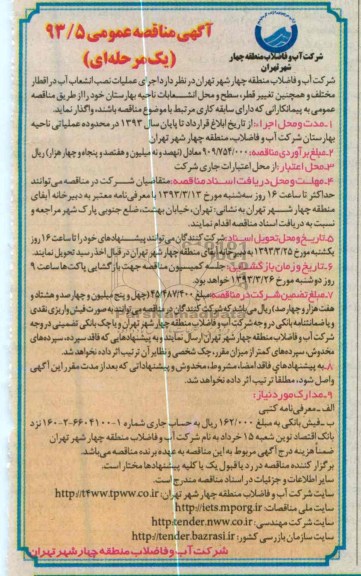 آگهی مناقصه عمومی ۹۳/۵
(یک مرحله‌ای)
شرکت آب و فاضلاب منطقه چهار
شهر تهران
شرکت آب و فاضلاب منطقه چهار شهر تهران در نظر دارد اجرای عملیات نصب انشعاب آب در اقطار
مختلف و همچنین تغییر قطر، سطح و محل انشعابات ناحیه بهارستان خود را از طریق مناقصه
عمومی به پیمانکارانی که دارای سابقه کاری مرتبط با موضوع مناقصه باشند، واگذار نماید.
۱ـ مدت و محل اجراء: از تاریخ ابلاغ قرارداد تا پایان سال ۱۳۹۳ در محدوده عملیاتی ناحیه
بهارستان شرکت آب و فاضلاب منطقه چهار شهر تهران
۲ـ مبلغ برآوردی مناقصه: ۹۰۹/۷۵۴/۰۰۰ معادل (نهصد و نه میلیون و هفتصد و پنجاه و چهار هزار) ریال
۳ـ محل اعتبار: از محل اعتبارات جاری شرکت
۴ـ مهلت و محل دریافت اسناد مناقصه: متقاضیان شرکت در مناقصه می‌توانند
حداکثر تا ساعت ۱۶ روز سه‌شنبه مورخ ۱۳۹۳/۳/۱۳ با معرفی‌نامه معتبر به دبیرخانه آبفای
منطقه چهار شهر تهران به نشانی: تهران، خیابان بهشت، ضلع جنوبی پارک شهر مراجعه و
نسبت به دریافت اسناد مناقصه اقدام نمایند.
۵ـ تاریخ و محل تحویل اسناد: شرکت کنندگان می‌توانند پیشنهادهای خود را تا ساعت ۱۶ روز
یکشنبه مورخ ۱۳۹۳/۳/۲۵ به دبیرخانه آبفای منطقه چهار شهر تهران در قبال اخذ رسید تحویل نمایند.
۶ـ تاریخ و زمان بازگشایی: جلسه کمیسیون مناقصه جهت بازگشایی پاکت‌ها ساعت ۹
روز دوشنبه مورخ ۱۳۹۳/۳/۲۶ خواهد بود.
۷ـ مبلغ تضمین شرکت در مناقصه: مبلغ ۴۵/۴۸۷/۴۰۰ (چهل و پنج میلیون و چهارصد و هشتاد و
هفت هزار و چهارصد) ریال می‌باشد که شرکت کنندگان در مناقصه می‌توانند به صورت فیش واریزی نقدی
و یا ضمانتنامه بانکی در وجه شرکت آب و فاضلاب منطقه چهار شهر تهران و یا چک بانکی تضمینی در وجه
شرکت آب و فاضلاب منطقه چهار شهر تهران ارسال نمایند و به پیشنهادهایی که فاقد سپرده، سپرده‌های
مخدوش، سپرده‌های کمتر از میزان مقرر، چک شخصی و نظایر آن ترتیب اثر داده نخواهد شد.
۸ـ به پیشنهادهای فاقد امضاء، مشروط، مخدوش و پیشنهاداتی که بعد از مدت مقرر این آگهی
واصل شود، مطلقا ترتیب اثر داده نخواهد شد.
۹ـ مدارک مورد نیاز:
الف ـ معرفی‌نامه کتبی
ب ـ فیش بانکی به مبلغ ۱۶۲/۰۰۰ ریال به حساب جاری شماره ۱-۶۶۰۴۱۰۰-۲-۱۶۰ نزد
بانک اقتصاد نوین شعبه ۱۵ خرداد به نام شرکت آب و فاضلاب منطقه چهار شهر تهران
ضمناً هزینه درج آگهی مربوط به این مناقصه به عهده برنده مناقصه می‌باشد.
برگزار کننده مناقصه در رد یا قبول یک یا کلیه پیشنهادها مختار است.
سایر اطلاعات و جزئیات در اسناد مناقصه مندرج است.
سایت شرکت آب و فاضلاب منطقه چهار شهر تهران: http://t4ww.tpww.co.ir
سایت ملی مناقصات: http://iets.mporg.ir
سایت شرکت مهندسی: http://tender.nww.co.ir
سایت سازمان بازرسی کشور: http://tender.bazrasi.ir
شرکت آب و فاضلاب منطقه چهار شهر تهران